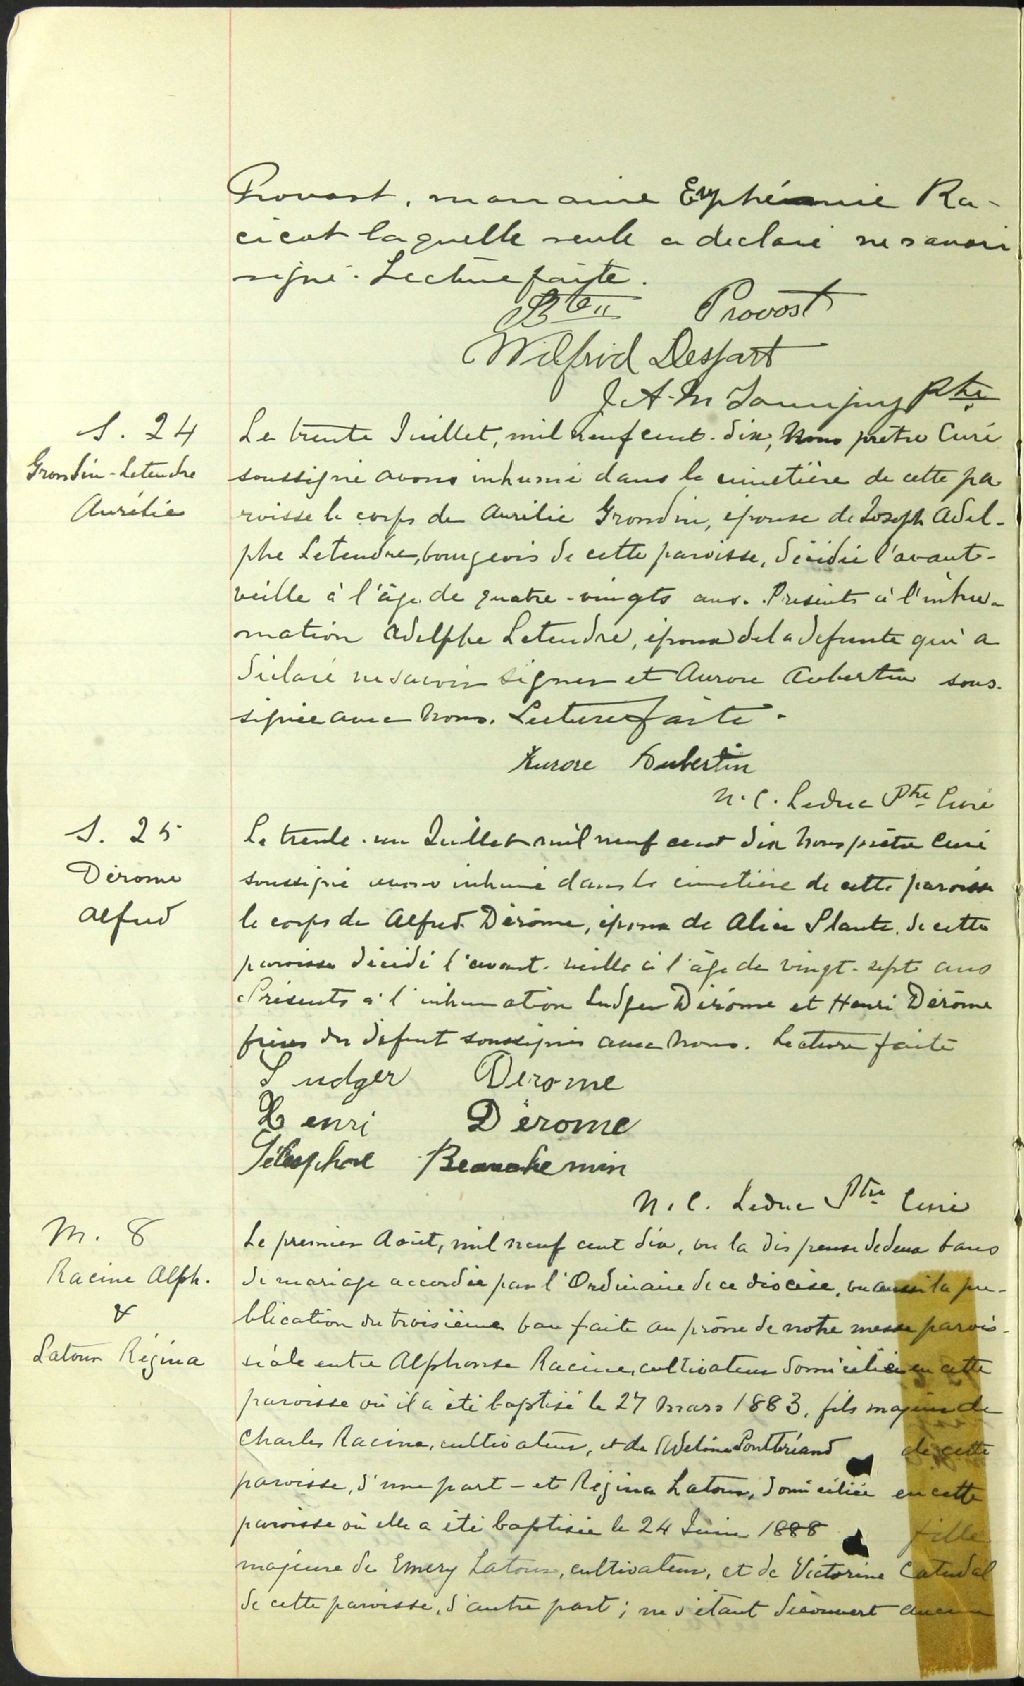 Provost, marraine Euphémie Ra-
cicot laquelle seule a déclaré ne savoir
signé. Lecture faite.
Bte Provost
Wilfrid Dessart
J. A. M. Ptre
S. 24
Grondin-Letendre
Aurélie
Le trente Juillet, mil neuf cent-dix, Nous prêtre Curé
soussigné avons inhumé dans le cimetière de cette pa
roisse le corps de Aurélie Grondin, épouse de Joseph Adel-
phe Letendre, bourgeois de cette paroisse, décédée l'avant-
veille à l'âge de quatre-vingts ans. Présents à l'inhu-
mation Adelphe Letendre, époux de la défunte qui a
déclaré ne savoir signer et Aurore Aubertin sous-
signée avec nous. Lecture faite.
Aurore Aubertin
N. C. Leduc Ptre Curé
S. 25
Dérome
Alfred
Le trente-un Juillet mil neuf cent dix Nous prêtre Curé
soussigné avons inhumé dans le cimetière de cette paroisse
le corps de Alfred Dérôme, époux de Alice Plante de cette
paroisse décédé l'avant-veille à l'âge de vingt-sept ans
Présents à l'inhumation Ludger Dérôme et Henri Dérôme
frères du défunt soussignés avec nous. Lecture faite
Ludger Dérome
Henri Dérome
Télesphore Beauchemin
N. C. Leduc Ptre Curé
M. 8
Racine Alph.
&
Latour Régina
Le premier Août, mil neuf cent dix, vu la dispense de deux bans
de mariage accordée par l'Ordinaire de ce diocèse, vu aussi la pu-
blication du troisième ban faite au prône de notre messe parois-
siale entre Alphonse Racine, cultivateur domicilié en cette
paroisse où il a été baptisé le 27 Mars 1883, fils majeur de
Charles Racine, cultivateur, et de Adeline Pontbriand de cette
paroisse, d'une part - et Régina Latour, domiciliée en cette
paroisse où elle a été baptisée le 24 Juin 1888 fille
majeure de Emery Latour, cultivateur, et de Victorine Catudal
de cette paroisse, d'autre part; ne s'étant découvert aucun